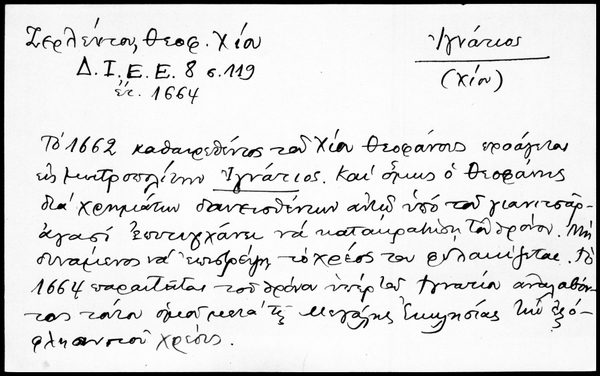 Ζερλέντου, Θεοφ. Χίου
Ἰγνάτιος
Δ.Ι.Ε.Ε. 8 σ. 119
(Χίου)
ἐτ. 1664
Τὸ 1662 καθαιρεθέντος τοῦ Χίου Θεοφάνους προάγεται
εἰς μητροπολίτην Ἰγνάτιος. Καὶ ὅμως ὁ Θεοφάνης
διὰ χρημάτων δανεισθέντων αὐτῷ ὑπὸ τοῦ γιανιτσάρ-
αγασί ἐπιτυγχάνει νὰ κατακρατήσῃ τοῦ θρόνου. Μὴ
δυνάμενος νὰ ἐπιστρέψῃ τὸ χρέος του φυλακίζεται. Τὸ
1664 παραιτεῖται τοῦ θρόνου ὑπὲρ τοῦ Ἰγνατίου ἀναλαβόν-
τος τούτου ὁμοῦ μετὰ τῆς Μεγάλης Ἐκκλησίας τὴν ἐξό-
φλησιν τοῦ χρέους.